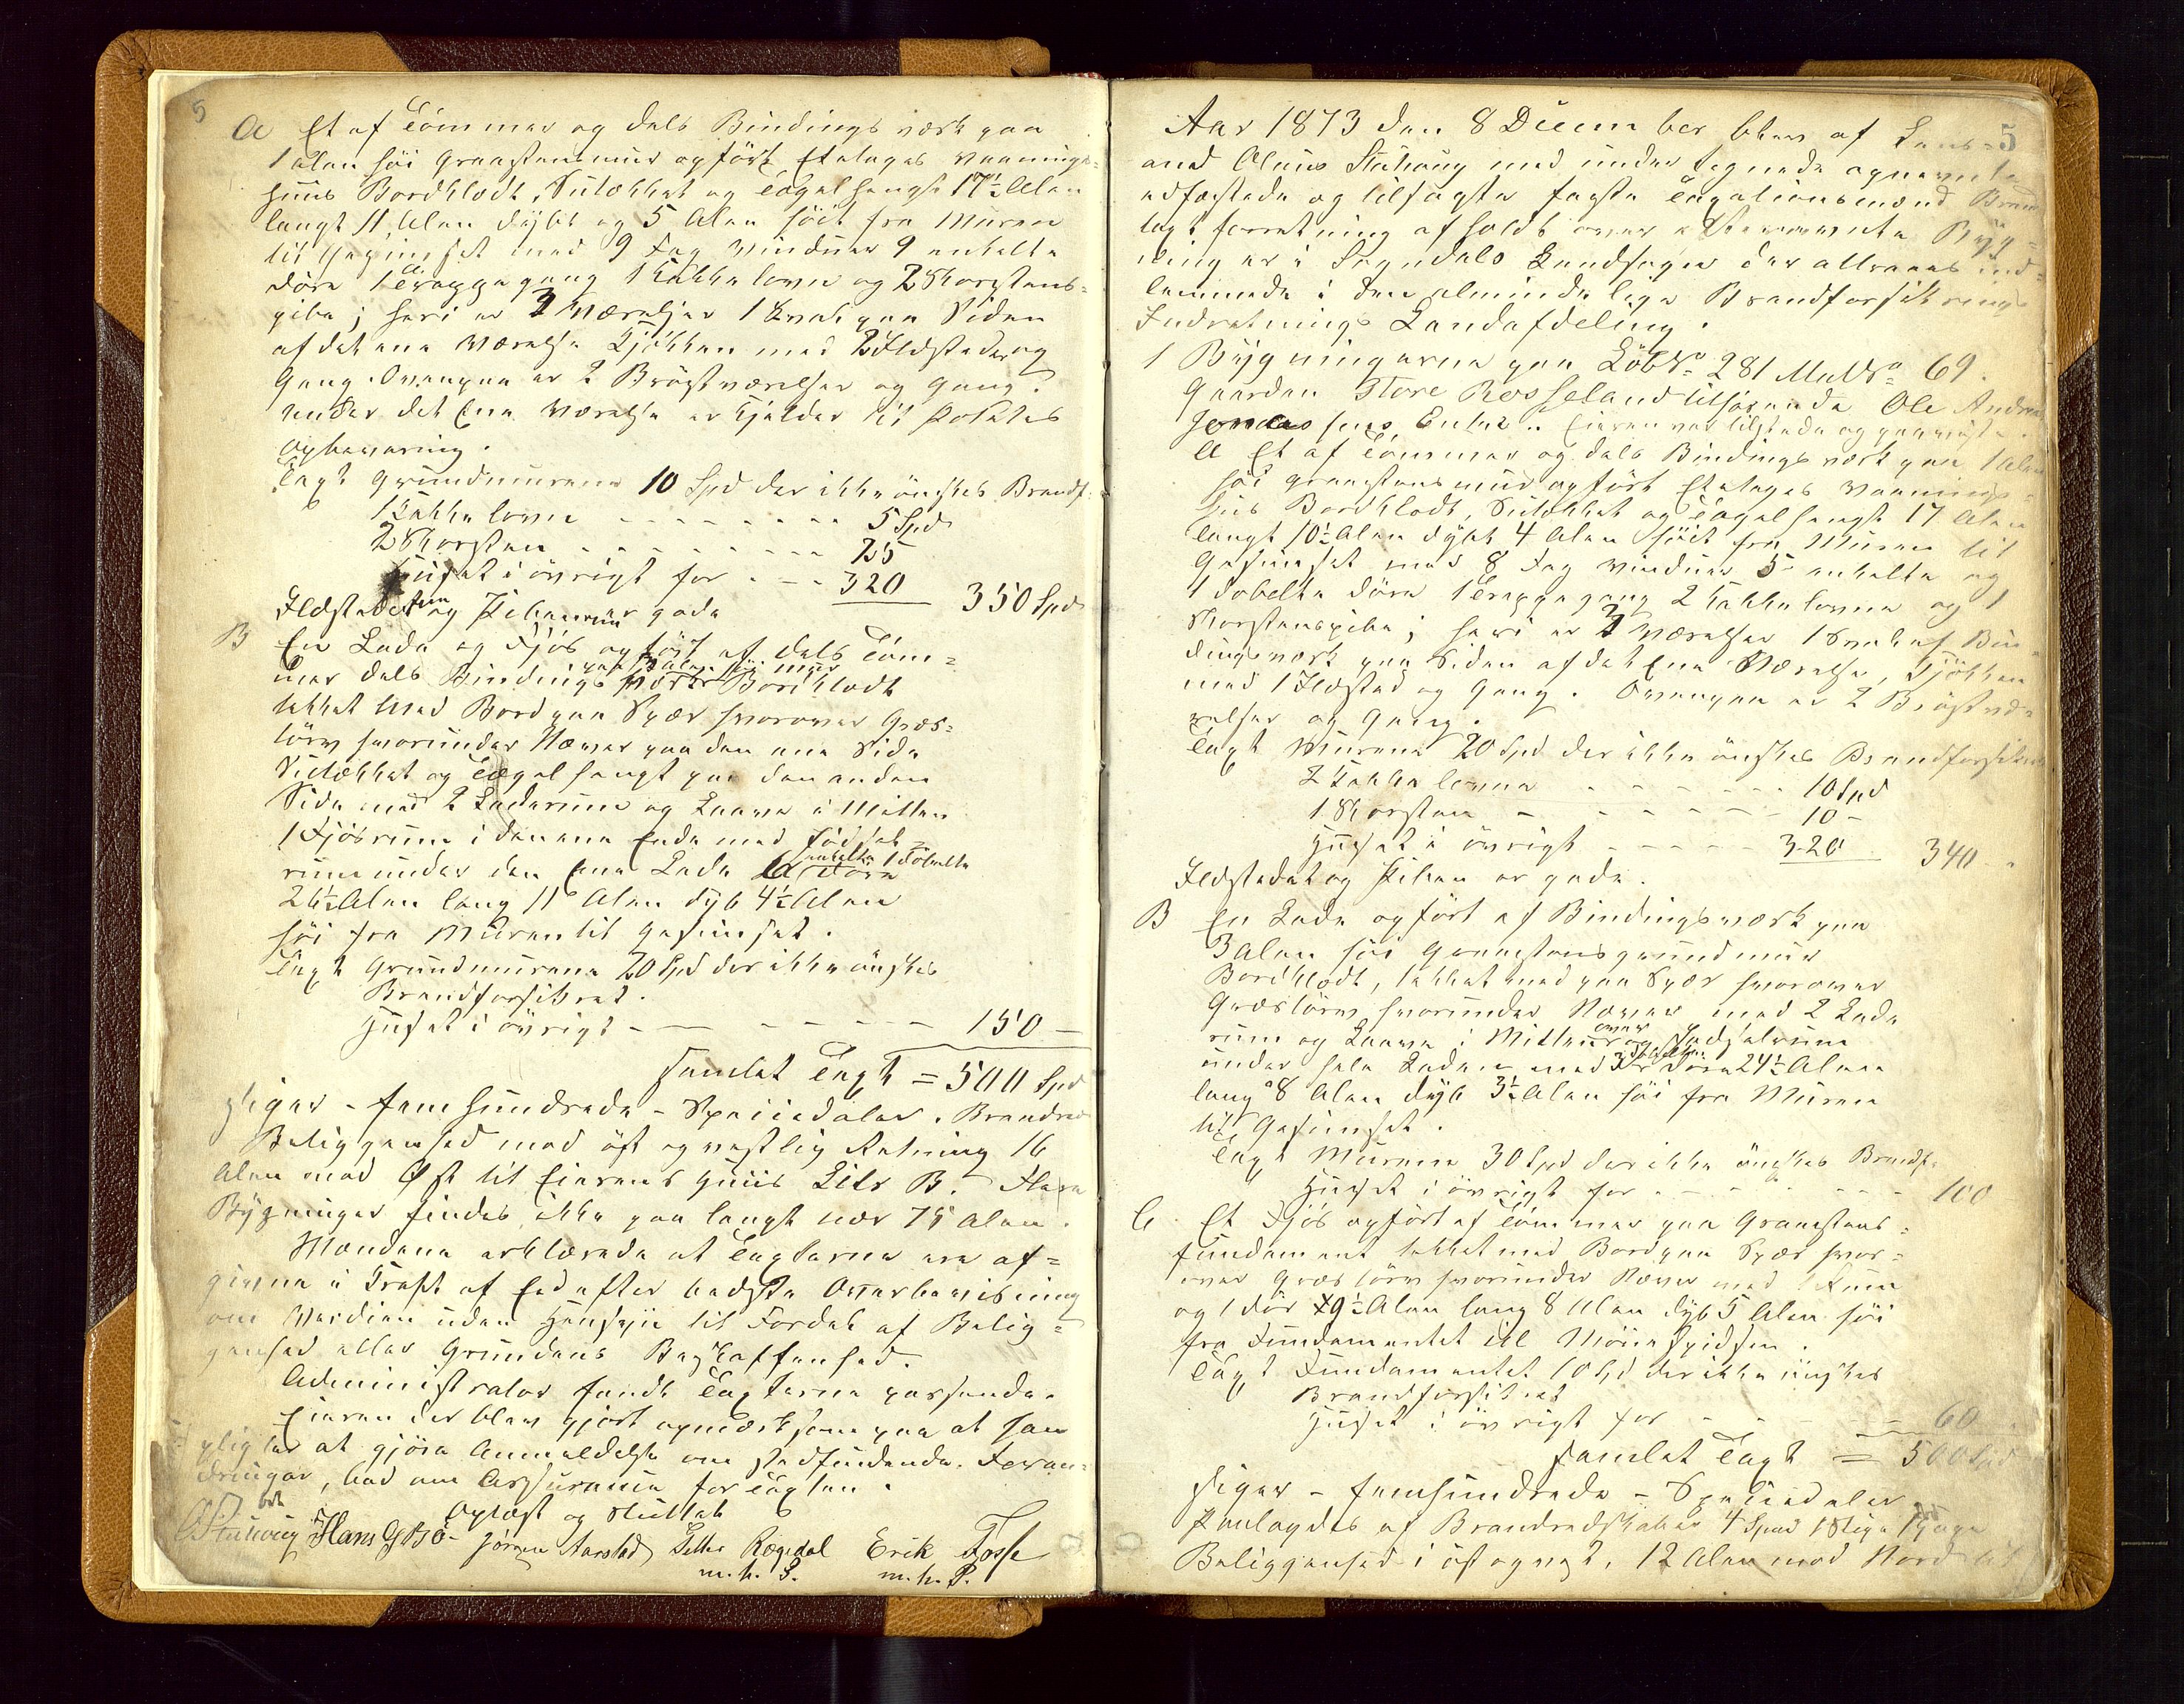 5
A Et af Tømmer og dels Bindingsværk paa
1 Alen høi Graastensmuur opført Etetages Vaanings=
huus Bordklædt, Sutækket og Tagelhængt 17½ Alen
langt 11 Alen dybt og 5 Alen høit fra Muren
til Gesimset med 9 Fag Vinduer 9 enkelte
Døre 1 Trappegang 1 Kakkelovn og 2 Skorstens=
pibe; heri er 3 Værelser 1 Sval paa Siden
af det ene Værelse Kjøkken med 2 Ildsteder og
Gang. Ovenpaa er 2 Brøstværelser og Gang.
under det Ene Værelse er Kjelder til Potetes
Opbevaring.
Taxt Grundmurene 10 Spd der ikke önskes Brandf.
1 Kakkelovn - - - - 5 Spd
2 Skorsten - - - - 25
Huset i övrigt for - - - 320 350 Spd
Ildstederne og Piberne er gode
B En Lade og Fjös opfört af dels Töm=
mer dels Bindingsværk Bordklædt
tækket med Bord paa Spær hvorover Græs=
törv hvorunder Næver paa den ene Side
Sutækket og Tagelhængt paa den anden
Side med 2 Laderum og Laave i Mitten
1 Fjösrum i den ene Ende med
rum under den Ene Lade 6 enkelte 1 dobelte Döre
26½ Alen lang 11 Alen dyb 4½ Alen
höi fra Muren til Gesimset.
Taxt Grundmurene 20 Spd der ikke önskes
Brandforsikret.
Huset i övrigt - - - - 150 -
Samlet Taxt = 500 Spd
siger - femhundrede - Speciedaler. Brandred
Beliggenhed med öst og vestlig Retning 16
Alen mod Øst til Eierens Huus Litr B. Flere
Bygninger findes ikke paa langt nær 75 Alen.
Mændene erklærede at Taxterne ere af=
givne i Kraft af Eed efter bedste Overbevisning
om Værdien uden Hensyn til Fordel af Belig=
genhed eller Grundens Beskaffenhed.
Administrator fandt Taxterne passende.
Eieren der blev gjort opmærksom paa at han
pligter at gjöre Anmeldelse om stedfindende Foran=
dringer, bad om Assurance for Taxten.
Oplæst og sluttet
O Stuhoug Hans G Bö Jörgen Aarstad Petter Rægedal Erik Fosse
m. h. P. m. h. P.
5
Aar 1873 den 8 December blev af Lens=
mand Olaus Stuhoug med undertegnede opnævnte
edfæstede og tilsagte faste Taxationsmænd Brand
taxtforretning afholdt over eftennævnte Byg=
ninger i Sogndals Landsogn der attraaes ind=
lemmede i den almindelige Brandforsikrings
Indretnings Landafdeling.
1 Bygningerne paa Löb No 281 Mat No 69.
Gaarden Store Rosseland tilhörende Ole Andreas
Jonassens Enke.. Eieren var tilstede og paaviste.
A Et af Tömmer og dels Bindingsværk paa 1 Alen
höi Graastensmuur opfört Etetages Vaanings=
huus Bordklædt, Sutækket og Tagelhængt 17 Alen
langt 10½ Alen dybt 4 Alen höit fra Muren til
Gesimset med 8 Fag Vinduer 5 enkelte og
1 dobelte Döre 1 Trappegang 2 Kakkelovne og 1
Skorstenspibe; heri er 3 Værelser 1 Sval af Bin=
dingsværk paa Siden af det Ene Værelse, Kjökken
med 1 Ildsted og Gang. Ovenpaa er 2 Bröstvæ=
relser og Gang.
Taxt Murene 20 Spd der ikke önskes Brandforsikret
2 Kakkelovne - - - - 10 Spd
1 Skorsten - - - - 10 -
Huset i övrigt - - - - 320 340 -
Ildstedet og Piben er gode.
B En Lade opfört af Bindingsværk paa
3 Alen höi Graastensgrundmuur
Bordklædt, tækket med paa Spær hvorover
Græstörv hvorunder Næver med 2 Lade
rum og Laave i Mitten
under hele Laden med 3 dobelte Döre 24½ Alen
lang 8 Alen dyb 3½ Alen höi fra Muren
til Gesimset.
Taxt Murene 30 Spd der ikke önskes Brandf.
Huset i övrigt for - - - - 100
C Et Fjös opfört af Tömmer paa Graastens=
fundament tækket med Bord paa Spær hvor=
over Græstörv hvorunder Næver med 1 Rum
og 1 Dör 9½ Alen lang 8 Alen dyb 5 Alen höi
fra Fundamentet til Mönespidsen.
Taxt Fundamentet 10 Spd der ikke önskes
Brandforsikret
Huset i övrigt for - - - 60
Samlet Taxt = 500 Spd
siger - femhundrede - Speciedaler
Paalagdes af Brandredskaber 4 Spand 1 Stige 1 Hage
Beliggenhed i öst og vest. 12 Alen mod Nord til